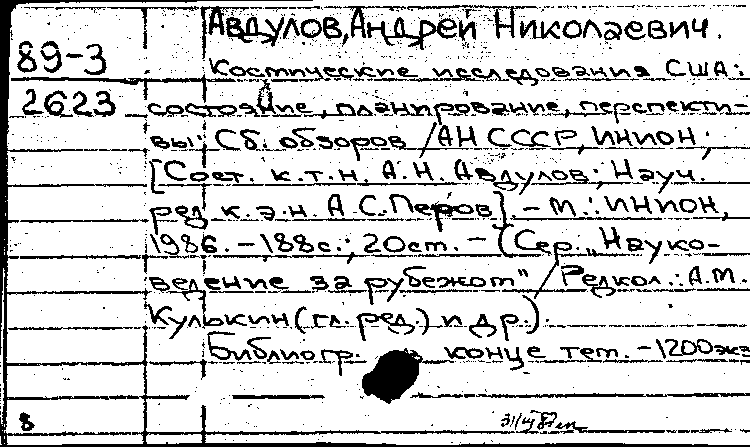 Авдулов, Андрей Николаевич.
89-3 Космические исследования США:
2623 состояние, планирование, перспекти-
вы: Сб. обзоров / АН СССР, ИНИОН;
[Сост. к.т.н. А.Н. Авдулов; Науч.
ред к.э.н. А.С. Перов]. - М.: ИНИОН,
1986. - 188с.; 20см. - (Сер. „Науко-
ведение за рубежом" / Редкол.: А.М.
Кулькин (гл. ред.) и др.).
Библиогр. конце тем. - 1200экз
8